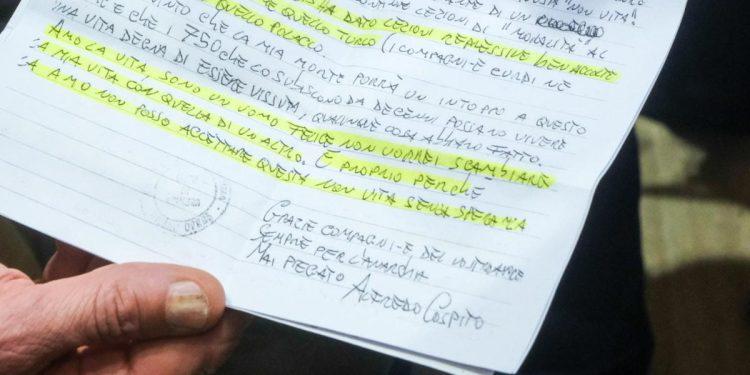 "NON VITA".
DI UN
HA DATO LEZIONI REPRESSIVE BEN ACCOLTE
LEZIONI DI "MORALITÀ" AL
QUELLO POLACCO E QUELLO TURCO (I COMPAGNI-E CURDI NE
CHE LA MIA MORTE PORRÀ UN INTOPPO A QUESTO
E CHE I 750 CHE LO SUBISCONO DA DECENNI POSSANO VIVERE
UNA VITA DEGNA DI ESSERE VISSUTA, QUALUNQUE COSA ABBIANO FATTO.
AMO LA VITA, SONO UN UOMO FELICE NON VORREI SCAMBIARE
LA MIA VITA CON QUELLA DI UN ALTRO. E PROPRIO PERCHÉ
LA AMO NON POSSO ACCETTARE QUESTA NON VITA SENZA SPERANZA
GRAZIE COMPAGNI-E DEL VOSTRO AMORE
SEMPRE PER L'ANARCHIA
MAI PIEGATO ALFREDO COSPITO